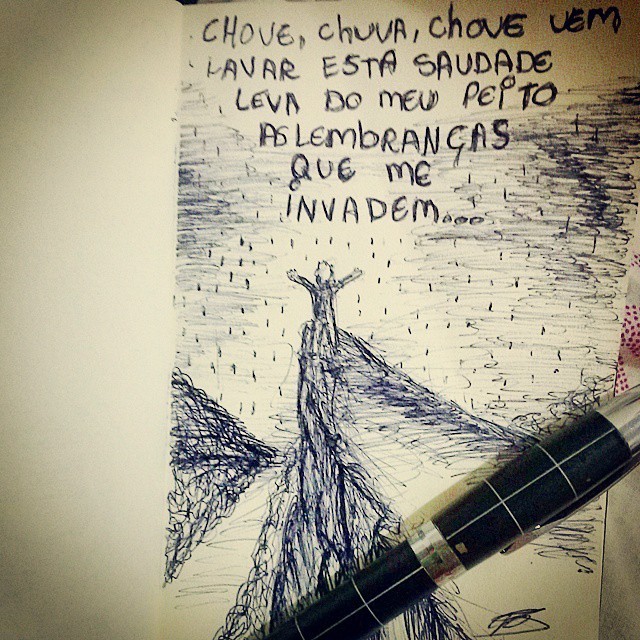 CHOVE, CHUVA, CHOVE VEM
LAVAR ESTA SAUDADE
LEVA DO MEU PEITO
AS LEMBRANÇAS
QUE ME
INVADEM...